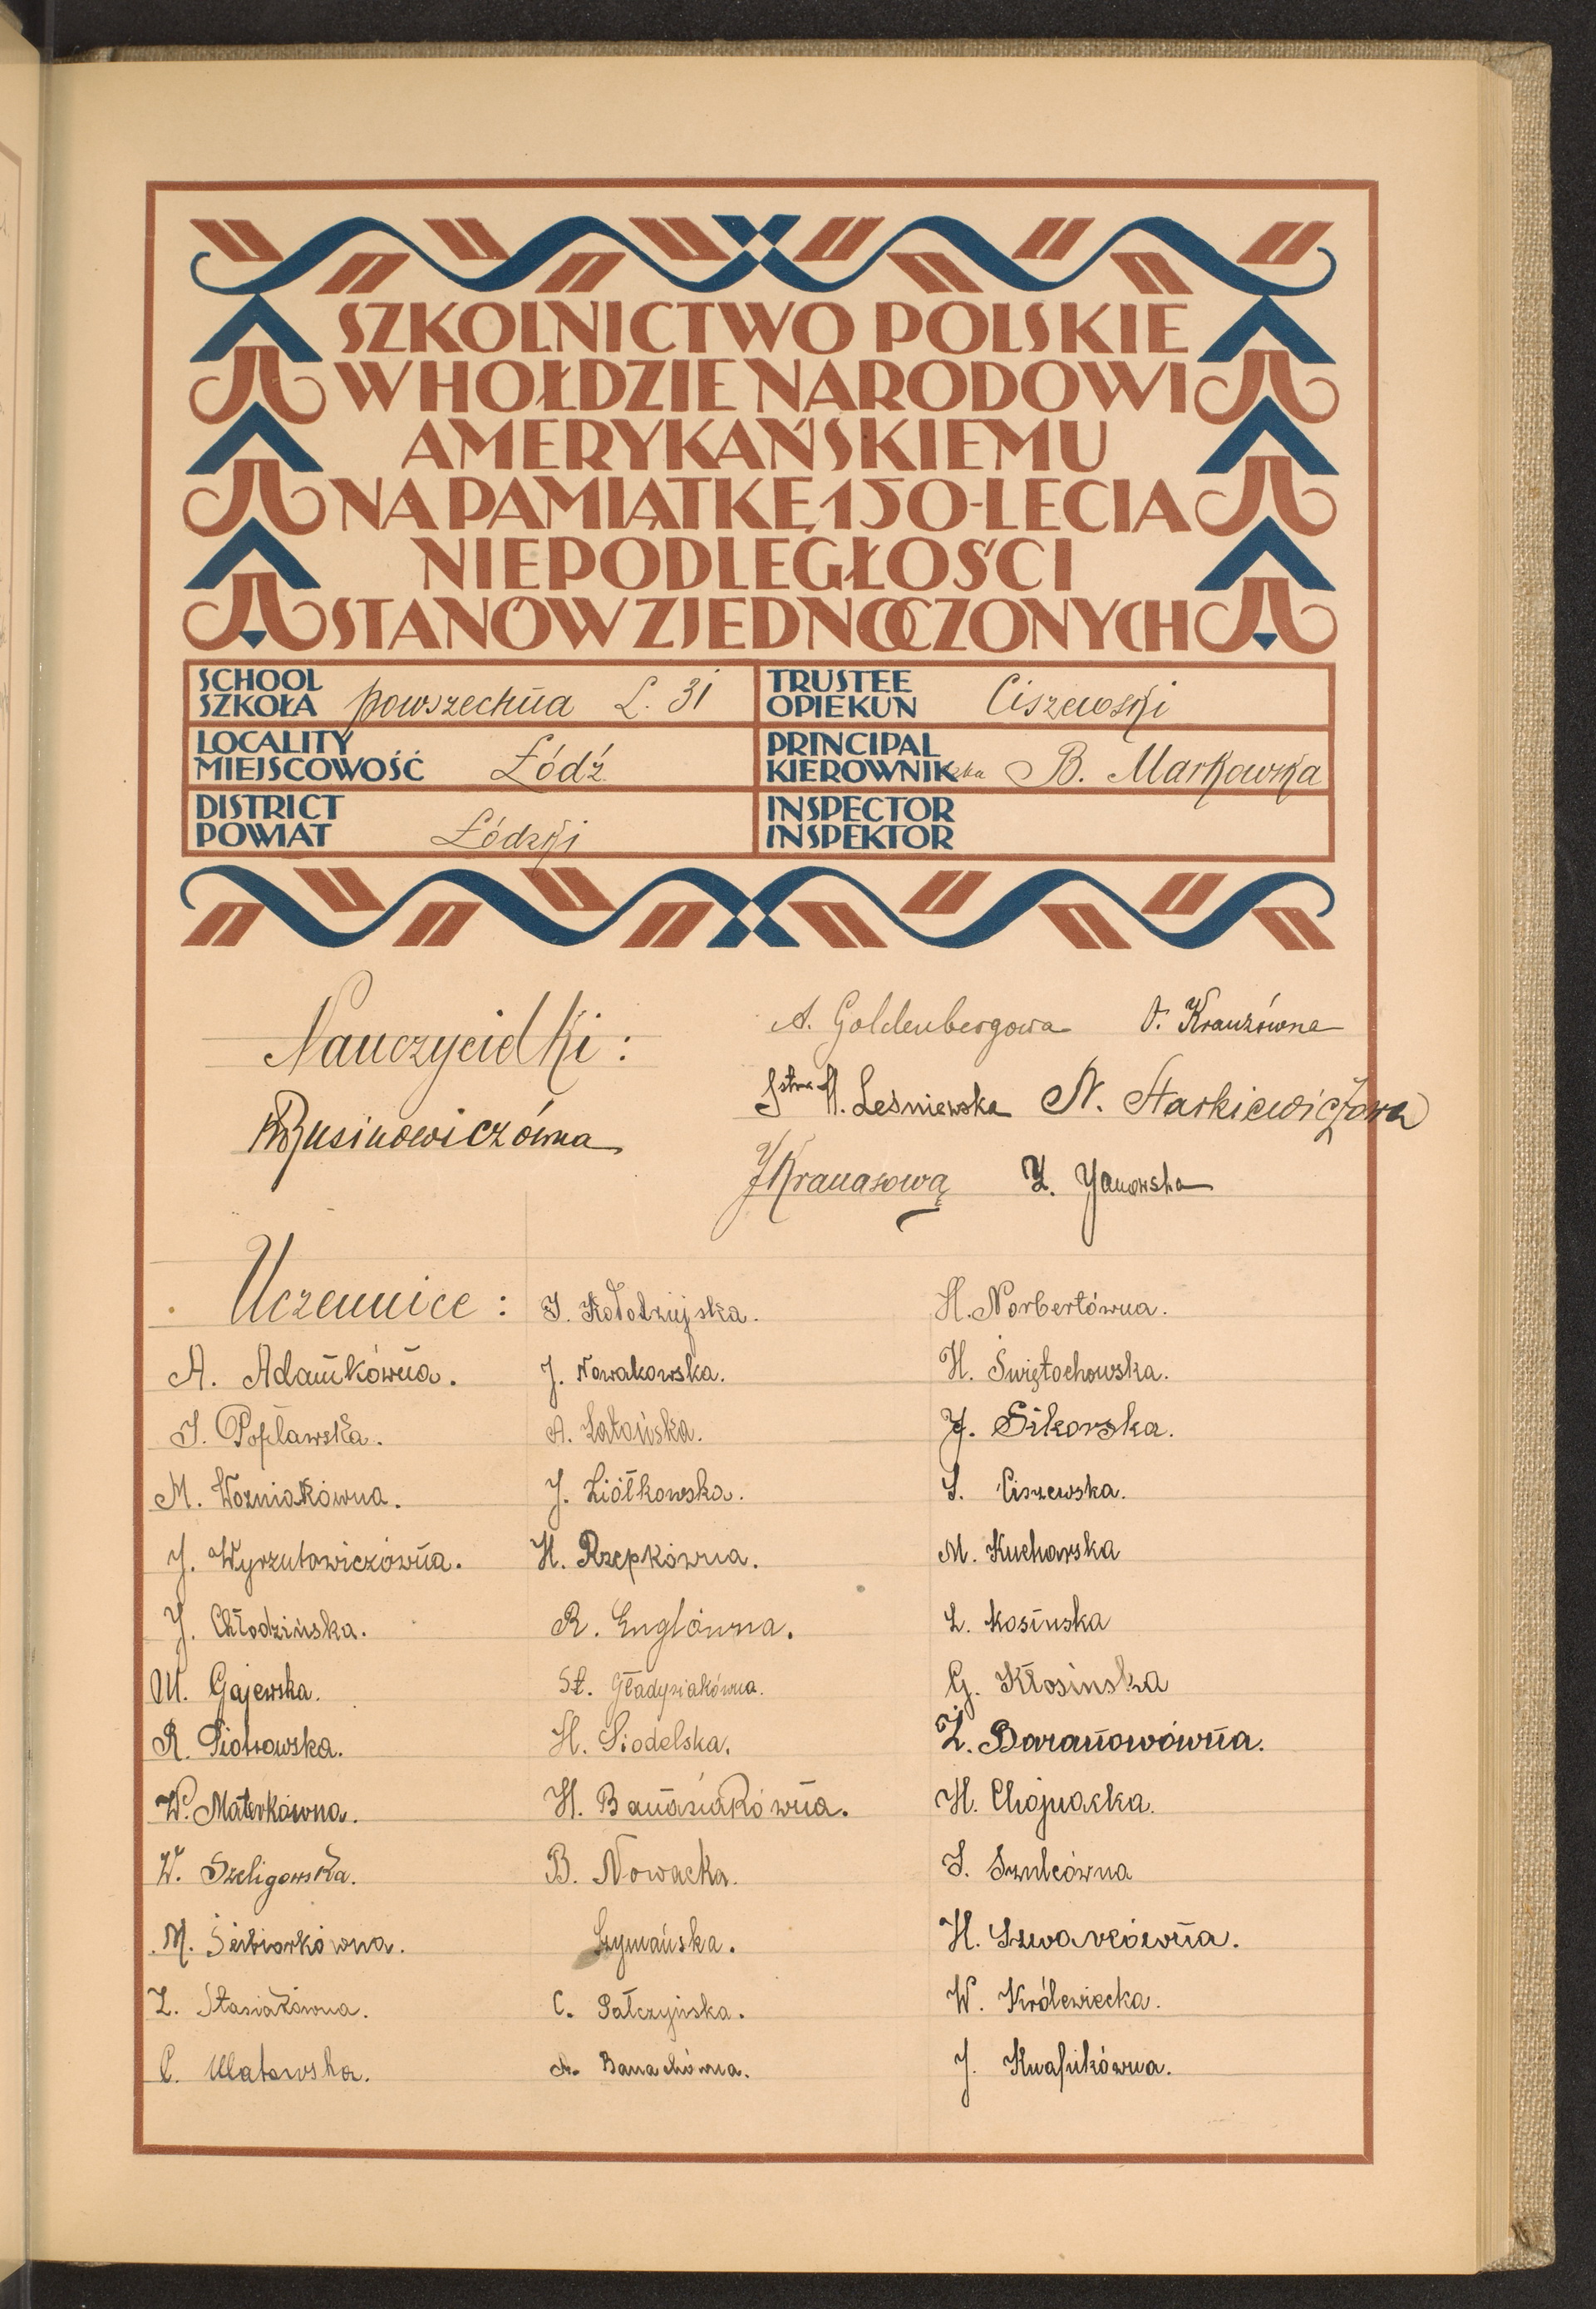 SZKOLNICTWO POLSKIE
W HOŁDZIE NARODOWI
AMERYKAŃSKIEMU
NA PAMIĄTKĘ 150-LECIA
NIEPODLEGŁOŚCI
STANÓW ZJEDNOCZONYCH
SCHOOL
SZKOŁA powszechna L. 31
TRUSTEE
OPIEKUN Ciszewski
LOCALITY
MIEJSCOWOŚĆ Łódź
PRINCIPAL
KIEROWNIKczka B. Markowska
DISTRICT
POWIAT Łódzki
INSPECTOR
INSPEKTOR
Nauczycielki:
A. Goldenbergowa O. Krauzówna
H. Leśniewska N. Starkiewiczowa
Rusinowiczówna
J Kranasowa Z. Yanowska
Uczennice:
A. Adamkówna.
J. Popławska.
M. Wozniakówna.
J. Wyrzutowiczówna.
J. Chłodzińska.
M. Gajewska.
R. Piotrowska.
W. Materkówna.
W. Szeligowska.
M. Śćibiorkówna.
Z. Stasiakówna.
C. Ulatowska.
J. Kołodziejska.
J. Nowakowska.
A. Latańska.
J. Ziółkowska.
H. Rzepkówna.
R. Englówna.
St. Gładysiakówna.
H. Siodelska.
H. Banasiakówna.
B. Nowacka.
Szymańska.
C. Pałczyńska.
A. Banachówna.
H. Norbertówna.
H. Świętochowska.
J. Sikorska.
S. Ciszewska.
M. Kucharska
L. Kosińska
G. Kłosinska
Z. Baranowówna.
H. Chojnacka.
S. Szulcówna
H. Szwarcówna.
W. Królewiecka.
J. Knapikówna.